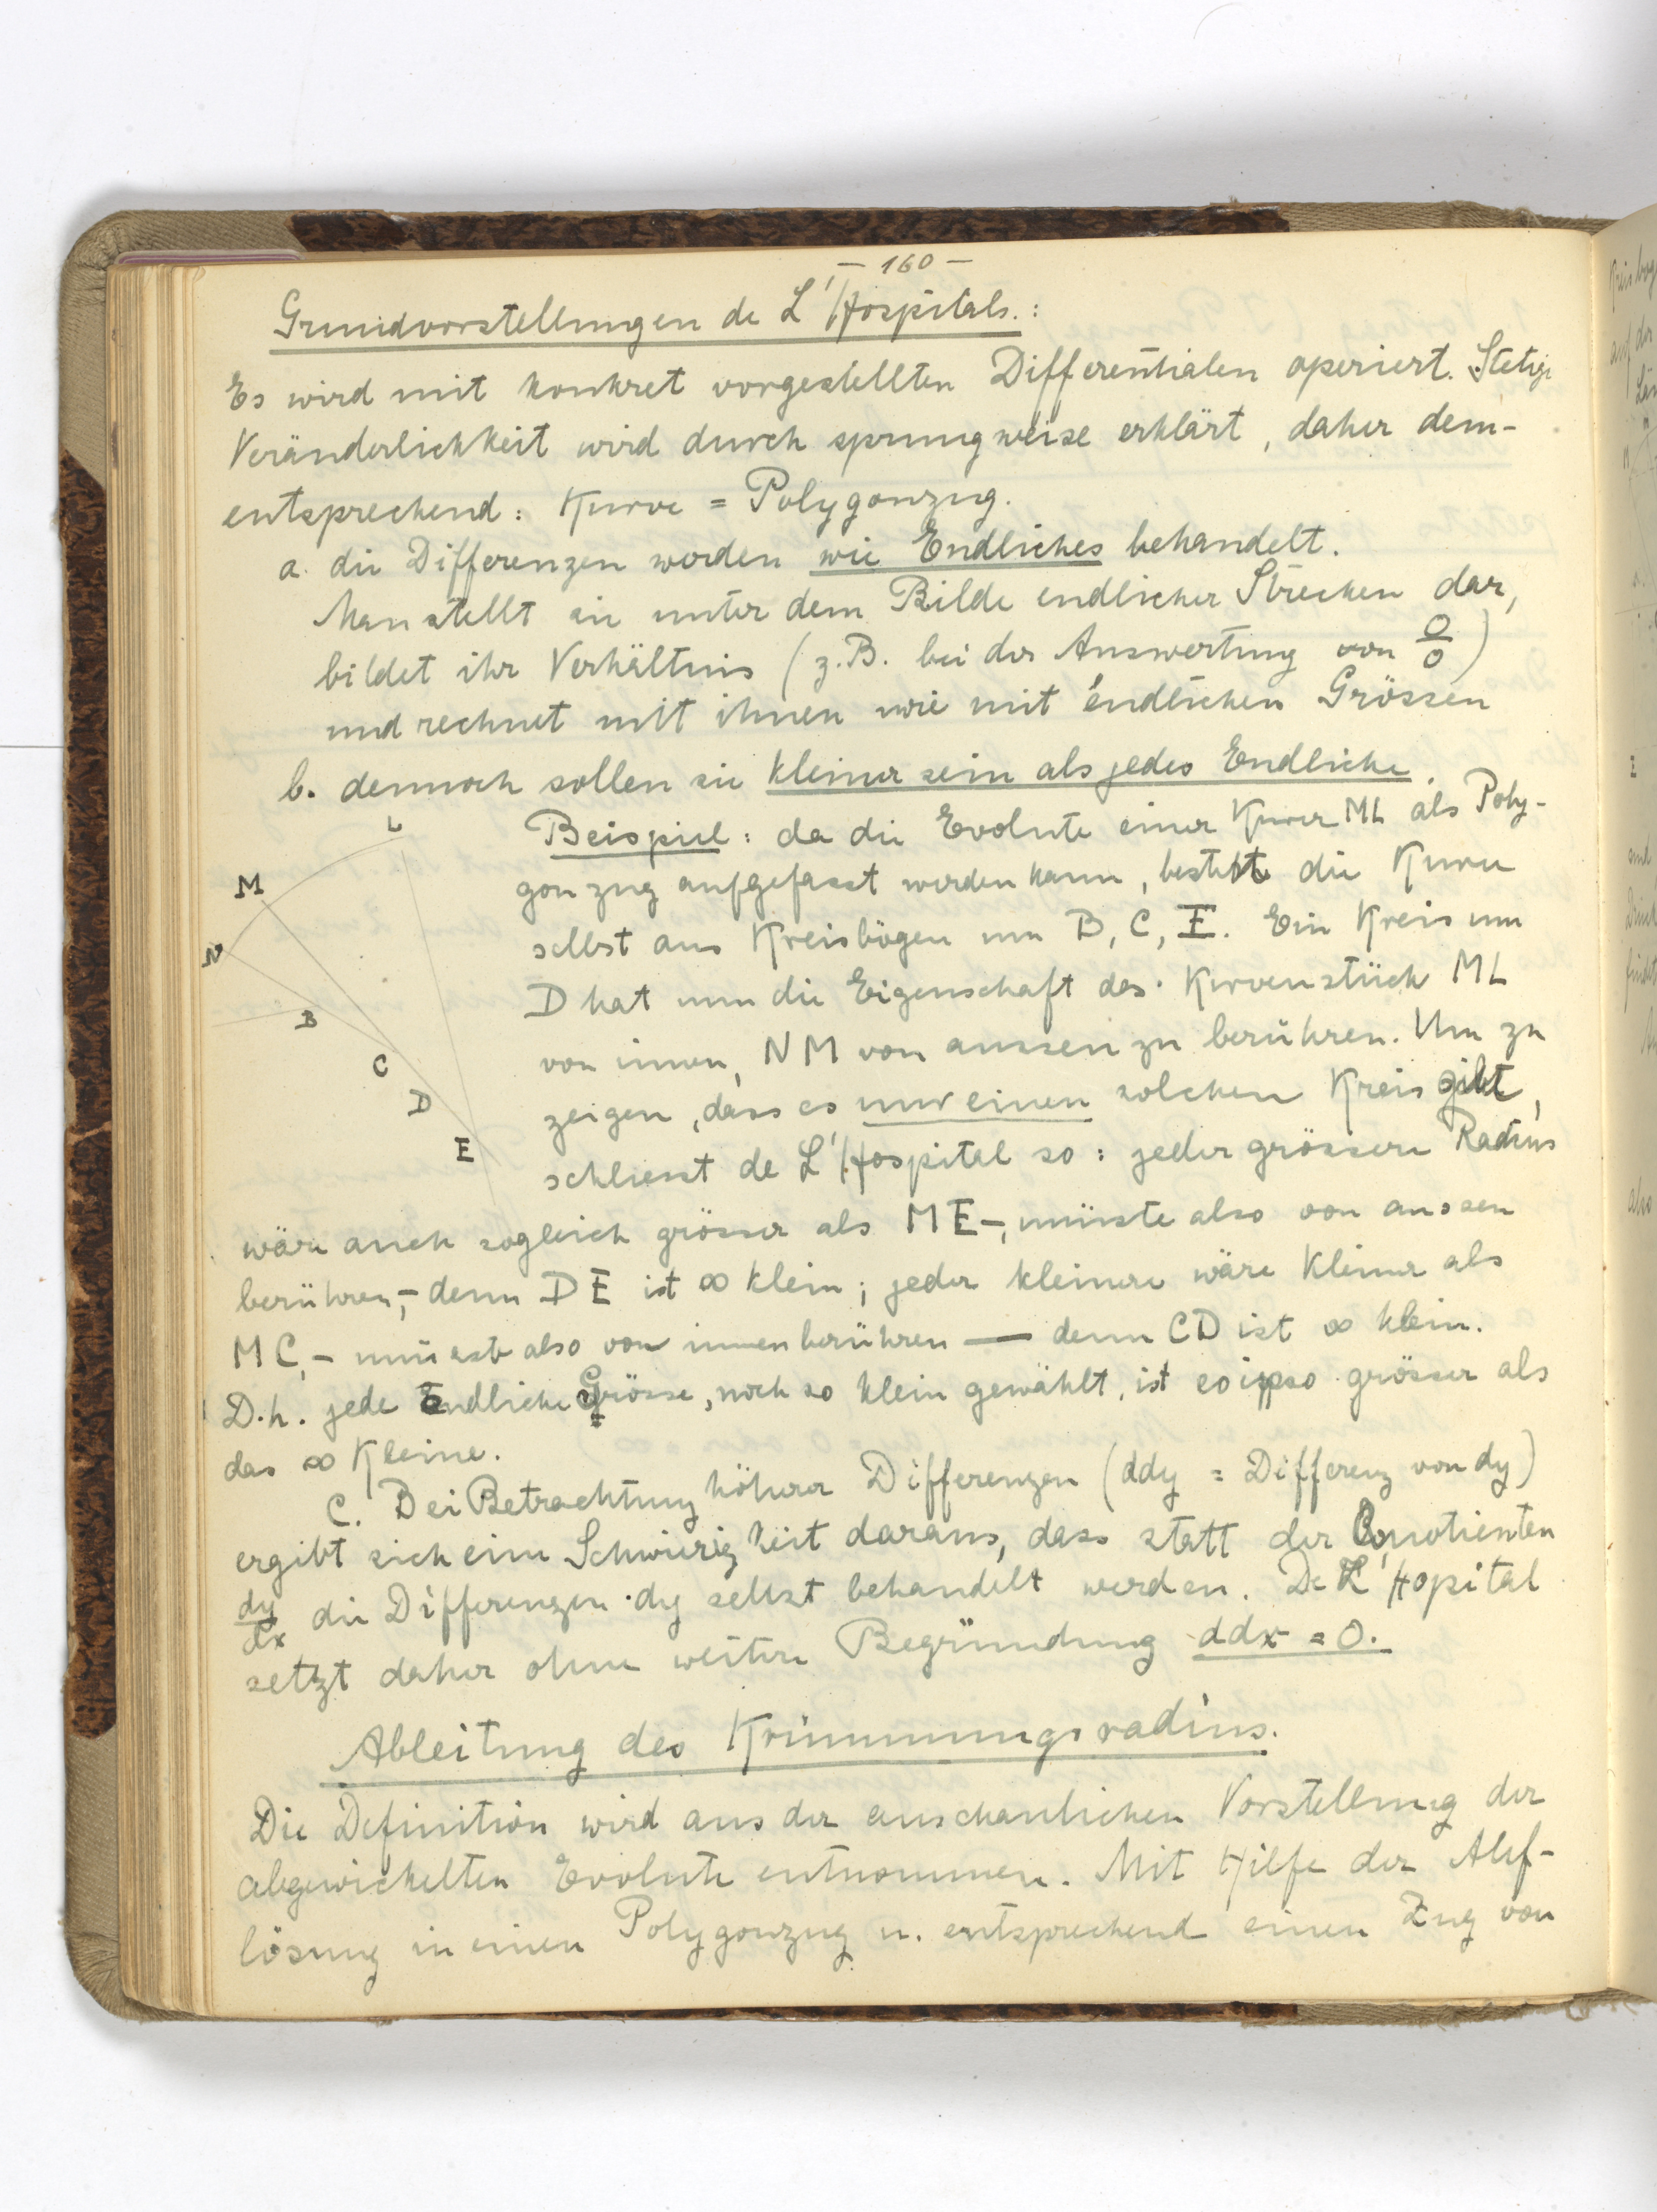 - 160 -
Grundvorstellungen de L'Hospitals.:
Es wird mit konkret vorgestellten Differentialen operiert. Stetige
Veränderlichkeit wird durch sprungweise erklärt, daher dem-
entsprechend: Kurve = Polygonzug.
a. die Differenzen werden wie Endliches behandelt.
Man stellt sie unter dem Bilde endlicher Strecken dar,
bildet ihr Verhältnis (z.B. bei der Auswertung von 0/0)
und rechnet mit ihnen wie mit endlichen Grössen
b. dennoch sollen sie kleiner sein als jedes Endliche.
Beispiel: da die Evolute einer Kurve ML als Poly-
gonzug aufgefasst werden kann, besteht die Kurve
selbst aus Kreisbögen um B, C, E. Ein Kreis um
D hat nun die Eigenschaft das Kurvenstück ML
von innen, NM von aussen zu berühren. Um zu
zeigen, dass es nur einen solchen Kreis gibt,
schliesst de L'Hospital so: jeder grössere Radius
wäre auch sogleich grösser als ME-, müsste also von aussen
berühren,- denn DE ist ∞ klein; jeder kleinere wäre kleiner als
MC,- müsste also von innen berühren — denn CD ist ∞ klein.
D.h. jede Endliche Grösse, noch so klein gewählt, ist eo ipso grösser als
das ∞ Kleine.
C. Bei Betrachtung höherer Differenzen (ddy = Differenz von dy)
ergibt sich eine Schwierigkeit daraus, dass statt der Quotienten
dy/dx die Differenzen dy selbst behandelt werden. De L'Hopital
setzt daher ohne weitere Begründung ddx = 0.
Ableitung des Krümmungsradius.
Die Definition wird aus der anschaulichen Vorstellung der
abgewickelten Evolute entnommen. Mit Hilfe der Auf-
lösung in einen Polygonzug u. entsprechend einen Zug von
L
M
N
B
C
D
E